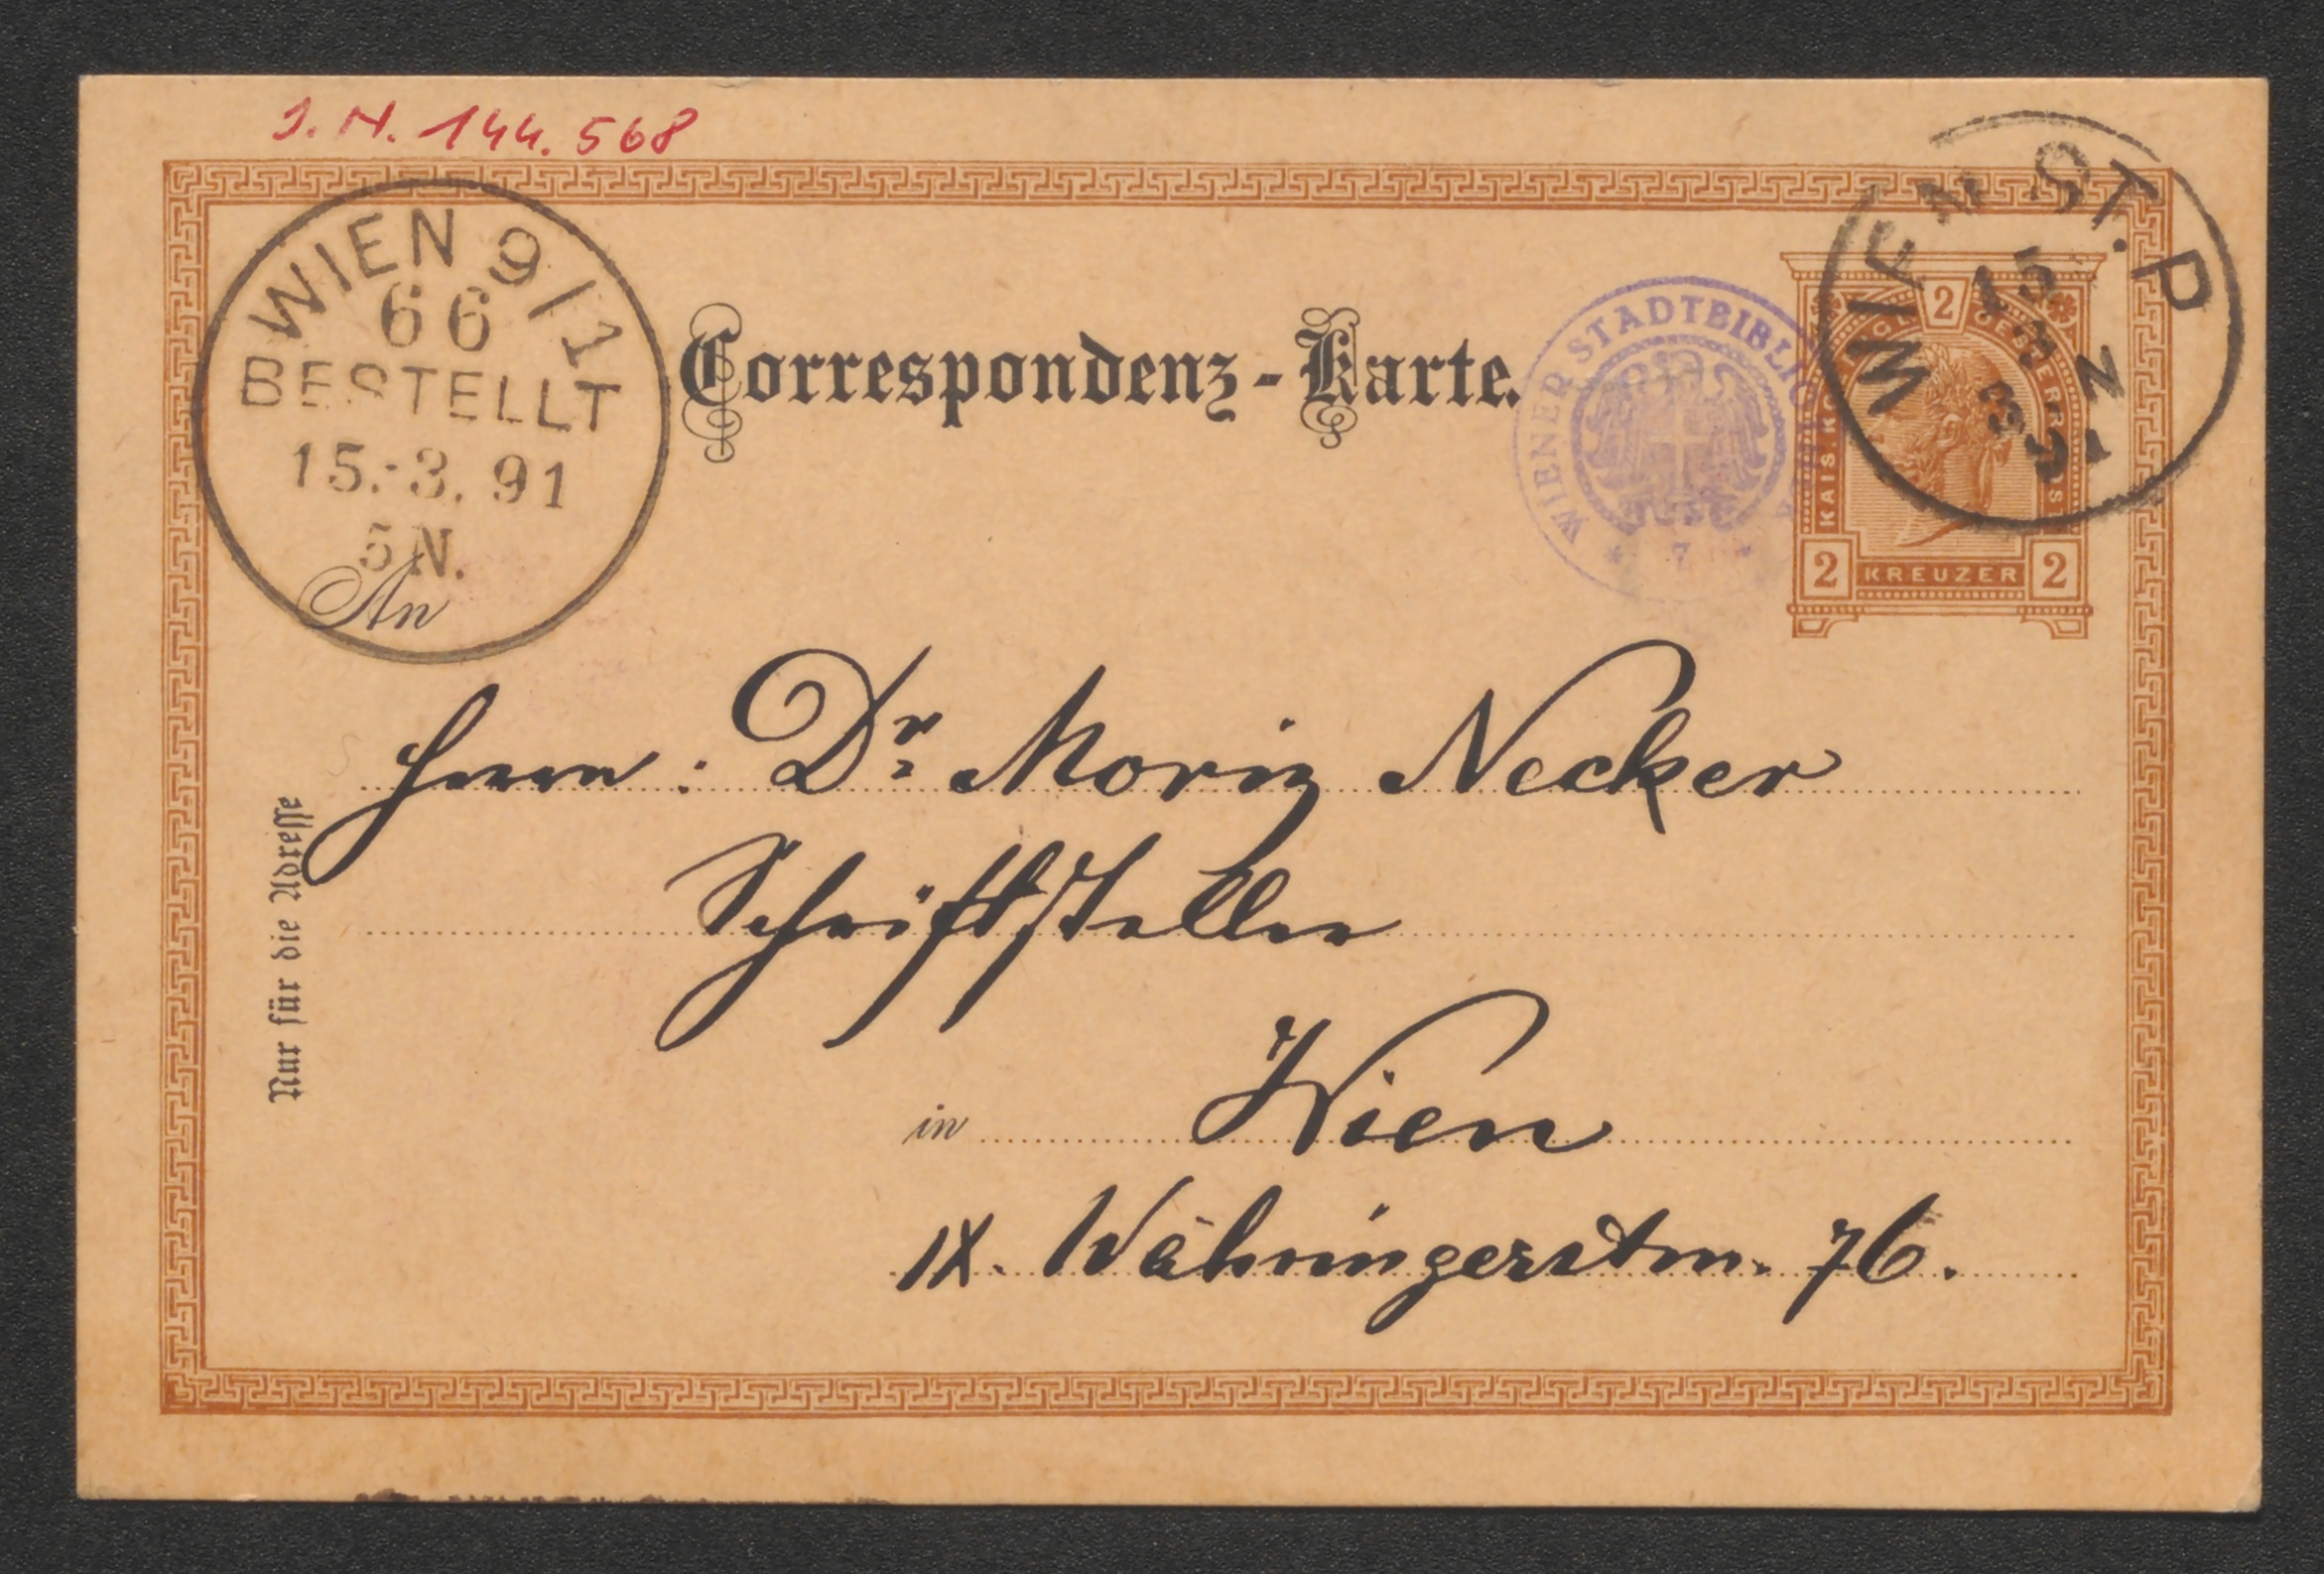 J. N. 144.568
WIEN 9/1
66
BESTELLT
15.3.91
5 N.
Correspondenz-Karte.
WIENER STADTBIBLIO
7
WIEN ST. P.
15
3
91
3 N
2
KAIS. KÖ
2 KREUZER 2
An
Herrn: Dr. Moriz Necker
Schriftsteller
in Wien
IX. Währingerstrn. 76.
Nur für die Adresse